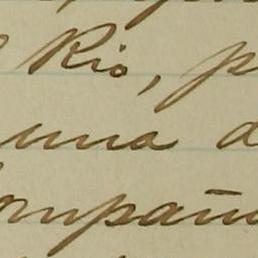 Rio, p
una d
ompañi